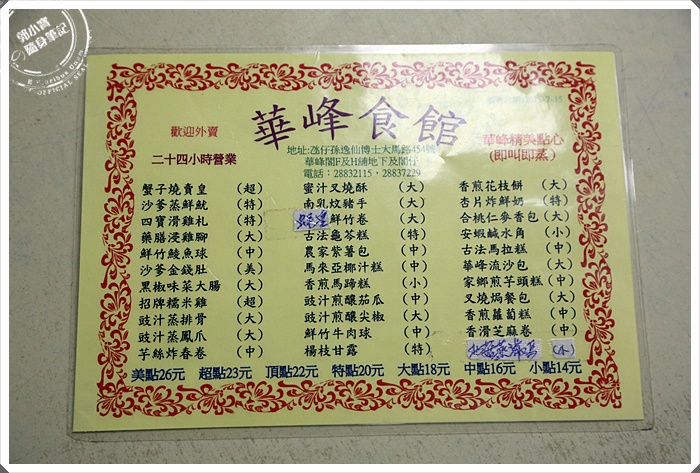 郭小寶
隨身筆記
華峰食館
歡迎外賣
二十四小時營業
地址:氹仔孫逸仙博士大馬路454號
華峰閣F及H舖地下及閣仔
電話：28832115 - 28837229
華峰精美點心
(即叫即蒸)
蟹子燒賣皇 (超)
沙爹蒸鮮魷 (特)
四寶滑雞札 (特)
藥膳浸雞腳 (大)
鮮竹鯪魚球 (中)
沙爹金錢肚 (美)
黑椒味菜大腸 (大)
招牌糯米雞 (超)
豉汁蒸排骨 (大)
豉汁蒸鳳爪 (大)
芋絲炸春卷 (中)
蜜汁叉燒酥 (大)
南乳炆豬手 (大)
鮮竹卷 (大)
古法龜苓糕 (特)
農家紫薯包 (中)
馬來亞椰汁糕 (中)
香煎馬蹄糕 (小)
豉汁煎釀茄瓜 (中)
豉汁煎釀尖椒 (大)
鮮竹牛肉球 (中)
楊枝甘露 (特)
香煎花枝餅 (大)
杏片炸鮮奶 (特)
合桃仁麥香包 (大)
安蝦鹹水角 (小)
古法馬拉糕 (中)
華峰流沙包 (大)
家鄉煎芋頭糕 (中)
叉燒焗餐包 (大)
香煎蘿蔔糕 (中)
香滑芝麻卷 (中)
(小)
美點26元 超點23元 頂點22元 特點20元 大點18元 中點16元 小點14元